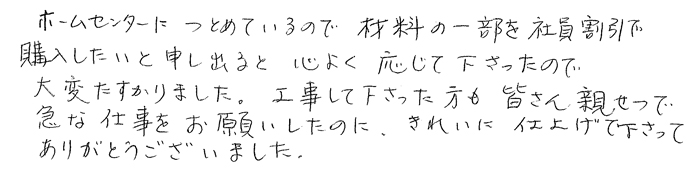 ホームセンターに つとめているので 材料の一部を社員割引で
購入したいと申し出ると 心よく 応じて下さったので
大変たすかりました。 工事して下さった方も 皆さん親せつで
急な仕事をお願いしたのに、きれいに仕上げて下さって
ありがとうございました。